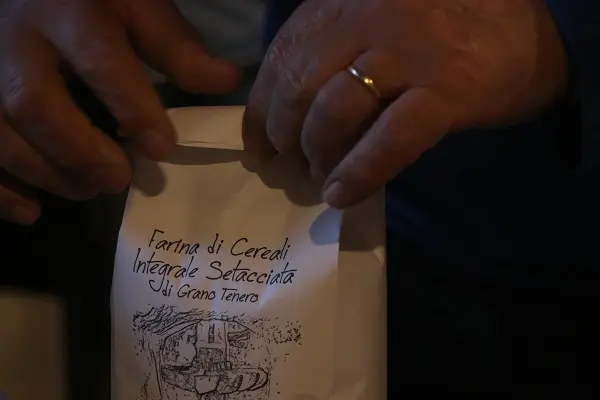 Farina di Cereali
Integrale Setacciata
di Grano Tenero